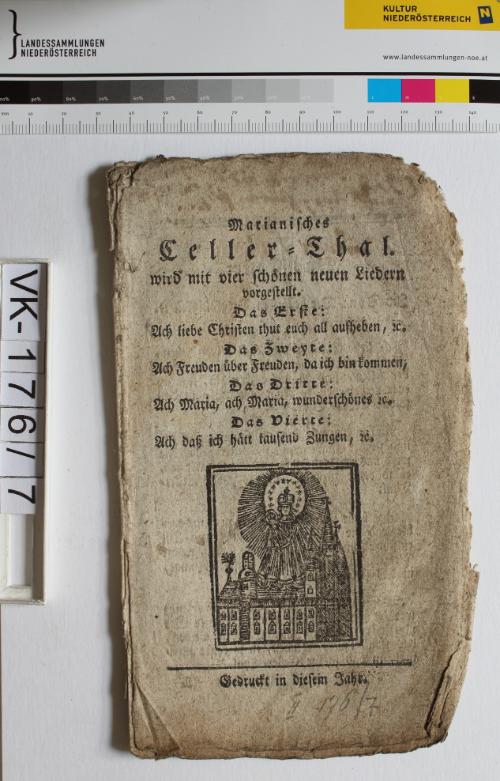 LANDESSAMMLUNGEN
NIEDERÖSTERREICH
KULTUR
NIEDERÖSTERREICH
N
www.landessammlungen-noe.at
VK-176/7
Marianisches
Celler-Thal.
wird mit vier schönen neuen Liedern
vorgestellt.
Das Erste:
Ach liebe Christen thut euch all aufheben, ꝛc.
Das Zweyte:
Ach Freuden über Freuden, da ich bin kommen,
Das Dritte:
Ach Maria, ach Maria, wunderschönes ꝛc.
Das Vierte:
Ach daß ich hätt tausend Zungen, ꝛc.
Gedruckt in diesem Jahr.
II 176/7